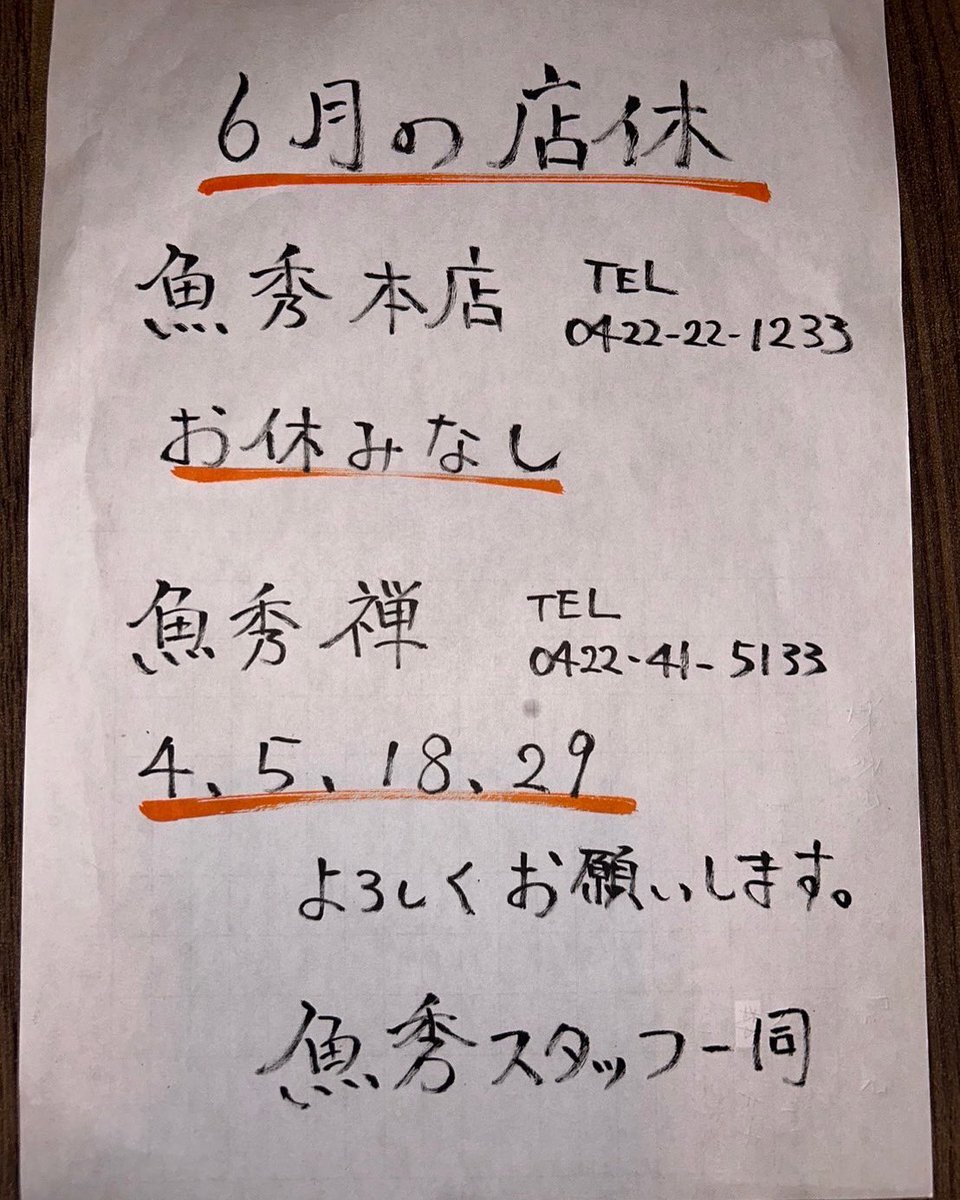 6月の店休
魚秀本店 TEL
0422-22-1233
お休みなし
魚秀禅 TEL
0422-41-5133
4、5、18、29
よろしくお願いします。
魚秀スタッフ一同